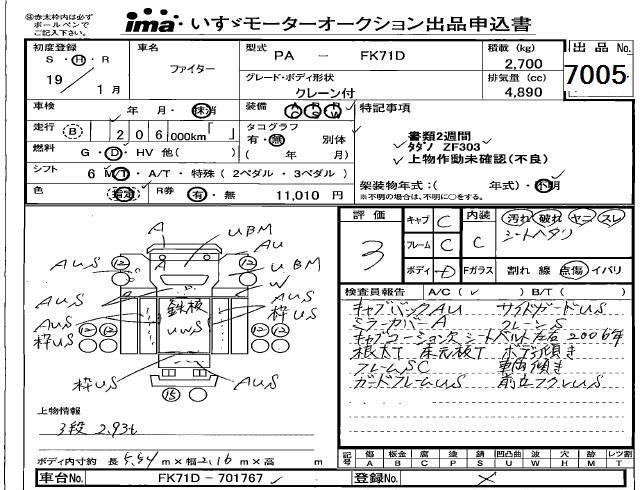 ※赤太枠内は必ず
ボールペンで
ご記入下さい。
ima いすゞモーターオークション出品申込書
初度登録
S・H・R
19 / 1 月
車名
ファイター
型式
PA － FK71D
グレード・ボディ形状
クレーン付
積載量 (kg)
2,700
排気量 (cc)
4,890
出品 No.
7005
車検
年 月・抹消
装備
特記事項
走行 (B) 206 000km「 」
タコグラフ
有・無 別体
( 年 月)
燃料
G・D・HV 他( )
シフト
6 MT・A/T・特殊 (2ペダル・3ペダル)
色
R券
有・無 11,010 円
書類2週間
タダノ ZF303
上物作動未確認(不良)
架装物年式:( 年式)・不明
※不明の場合は、不明に○をする。
評価
3
キャブ C
フレーム C
ボディ D
内装 C
汚れ 破れ ヤニ スレ
シートヘタリ
Fガラス 割れ 線 点傷 イバリ
検査員報告 A/C( ✓ ) B/T( )
キャブバックAU サイドガードUS
ミラーカバーA クレーンS
キャブコーション欠 シートベルト左右2006年
根太T 床元板T ボデー傾き
フレームSC 車両傾き
ガードフレームUS
A
UBM
AU
12
12
AUS
UBM
W
鉄板
UWS
AUS
枠US
AUS
AUS
枠US
枠US
AUS
15
上物情報
3段 2.93t
ボディ内寸約 長 5.54 m×幅 2.16 m×高 m
記号
傷 板金 腐 塗 錆 凹凸曲 波 欠 歩 メ レツ切
A B C P S U W H X M T
車台No. FK71D－701767
登録No.